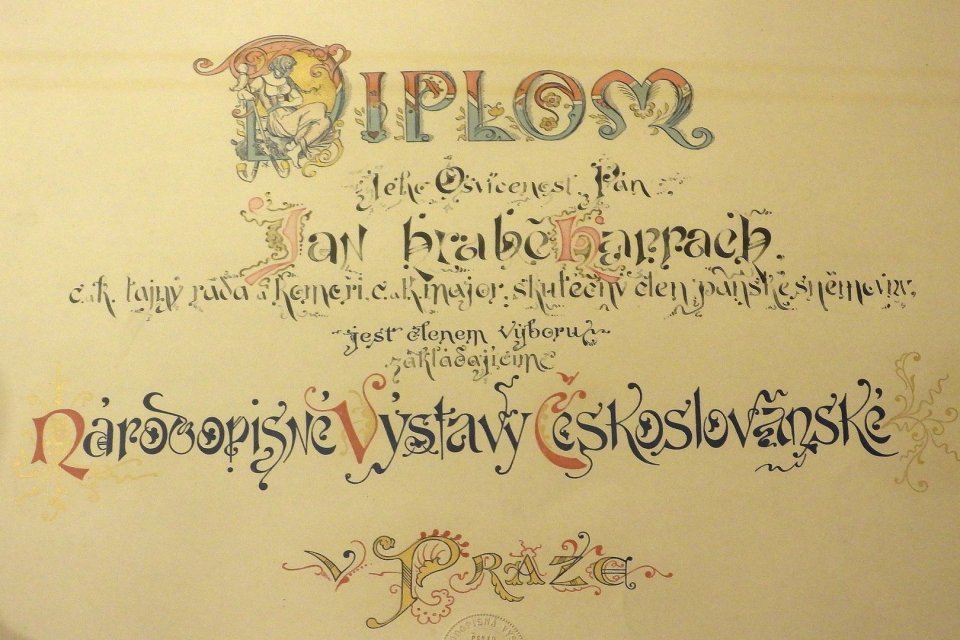 DIPLOM
Jeho Osvícenost Pán
Jan hrabě Harrach.
c.k. tajný rada a komoří, c.a k. major, skutečný člen panské sněmovny,
jest členem výboru
zakládajícího
Národopisné Výstavy Českoslovanské
v PRAZE